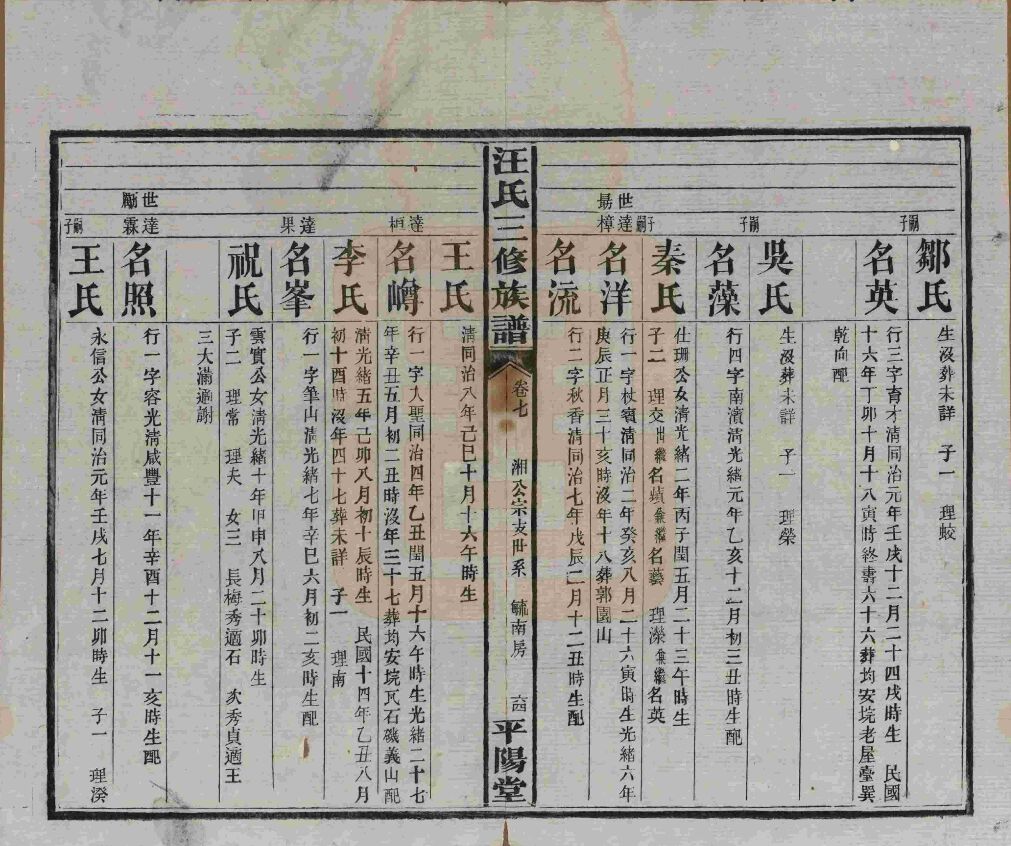 嗣子
鄒氏
生沒葬未詳 子一 理蛟
名英
行三字育才清同治元年壬戌十二月二十四戌時生 民國
十六年丁卯十月十八寅時終壽六十六葬均安垸老屋臺巽
乾向配
嗣子
吳氏
生沒葬未詳 子一 理榮
嗣子
名藻
行四字南濱清光緒元年乙亥十二月初三丑時生配
嗣子
秦氏
仕珊公女清光緒二年丙子閏五月二十三午時生
子二 理交出繼名蘋兼繼名藝 理濚兼繼名英
世
達樟
名洋
行一字杖賓清同治二年癸亥八月二十六寅時生光緒六年
庚辰正月三十亥時沒年十八葬郭園山
名流
行二字秋香清同治七年戊辰二月十二丑時生配
汪氏三修族譜
卷七
湘公宗支世系
毓南房
六四
平陽堂
王氏
清同治八年己巳十月十六午時生
達桓
名嶟
行一字人聖同治四年乙丑閏五月十六午時生光緒二十七
年辛丑五月初二丑時沒年三十七葬均安垸瓦石磯義山配
李氏
清光緒五年己卯八月初十辰時生 民國十四年乙丑八月
初十酉時沒年四十七葬未詳 子一 理南
達果
名峯
行一字筆山清光緒七年辛巳六月初二亥時生配
祝氏
雲實公女清光緒十年甲申八月二十卯時生
子二 理常 理夫 女三 長梅秀適石 次秀貞適王
三大滿適謝
世勵
達霖
名照
行一字容光清咸豐十一年辛酉十二月十一亥時生配
嗣子
王氏
永信公女清同治元年壬戌七月十二卯時生 子一 理湀